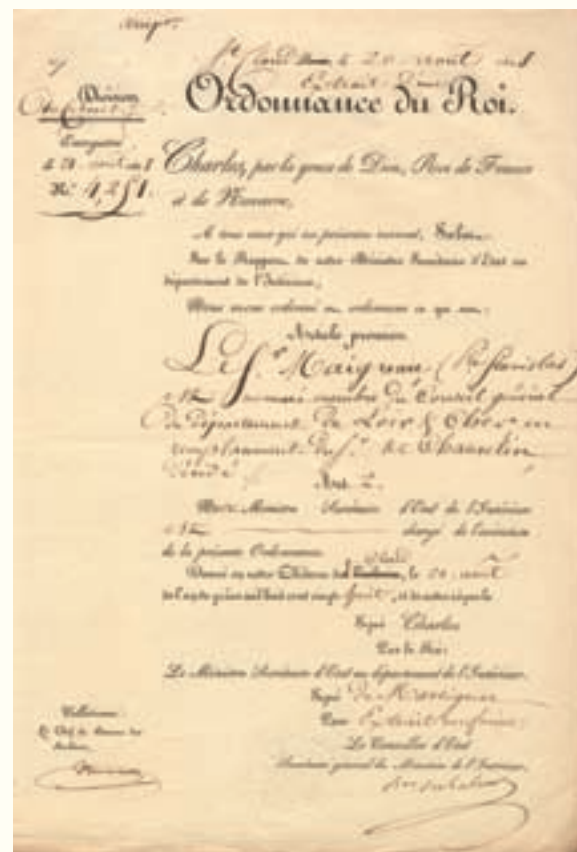 St Cloud le 20 août
Division
Ordonnance du Roi.
Enregistré
N.º 4,251.
Charles, par la grace de Dieu, Roi de France
et de Navarre,
A tous ceux qui ces présentes verront, Salut.
Sur le Rapport de notre Ministre Secrétaire d'Etat au
département de l'Intérieur,
Nous avons ordonné et ordonnons ce qui suit:
Article premier.
Le S.r Maignan (Stanislas)
est nommé membre du Conseil général
du département de Loir & Cher en
remplacement du S.r de Chauvelin
Art. 2.
Notre Ministre Secrétaire d'Etat de l'Intérieur
est chargé de l'exécution
de la présente Ordonnance.
Donné en notre Château de St Cloud, le 20 août
de l'an de grâce mil huit cent vingt huit, et de notre règne le
Signé Charles
Par le Roi:
Le Ministre Secrétaire d'Etat au département de l'Intérieur.
Signé De Martignac
Pour Extrait conforme:
Le Conseiller d'Etat
Secrétaire général du Ministère de l'Intérieur,
Le Chef du Bureau des